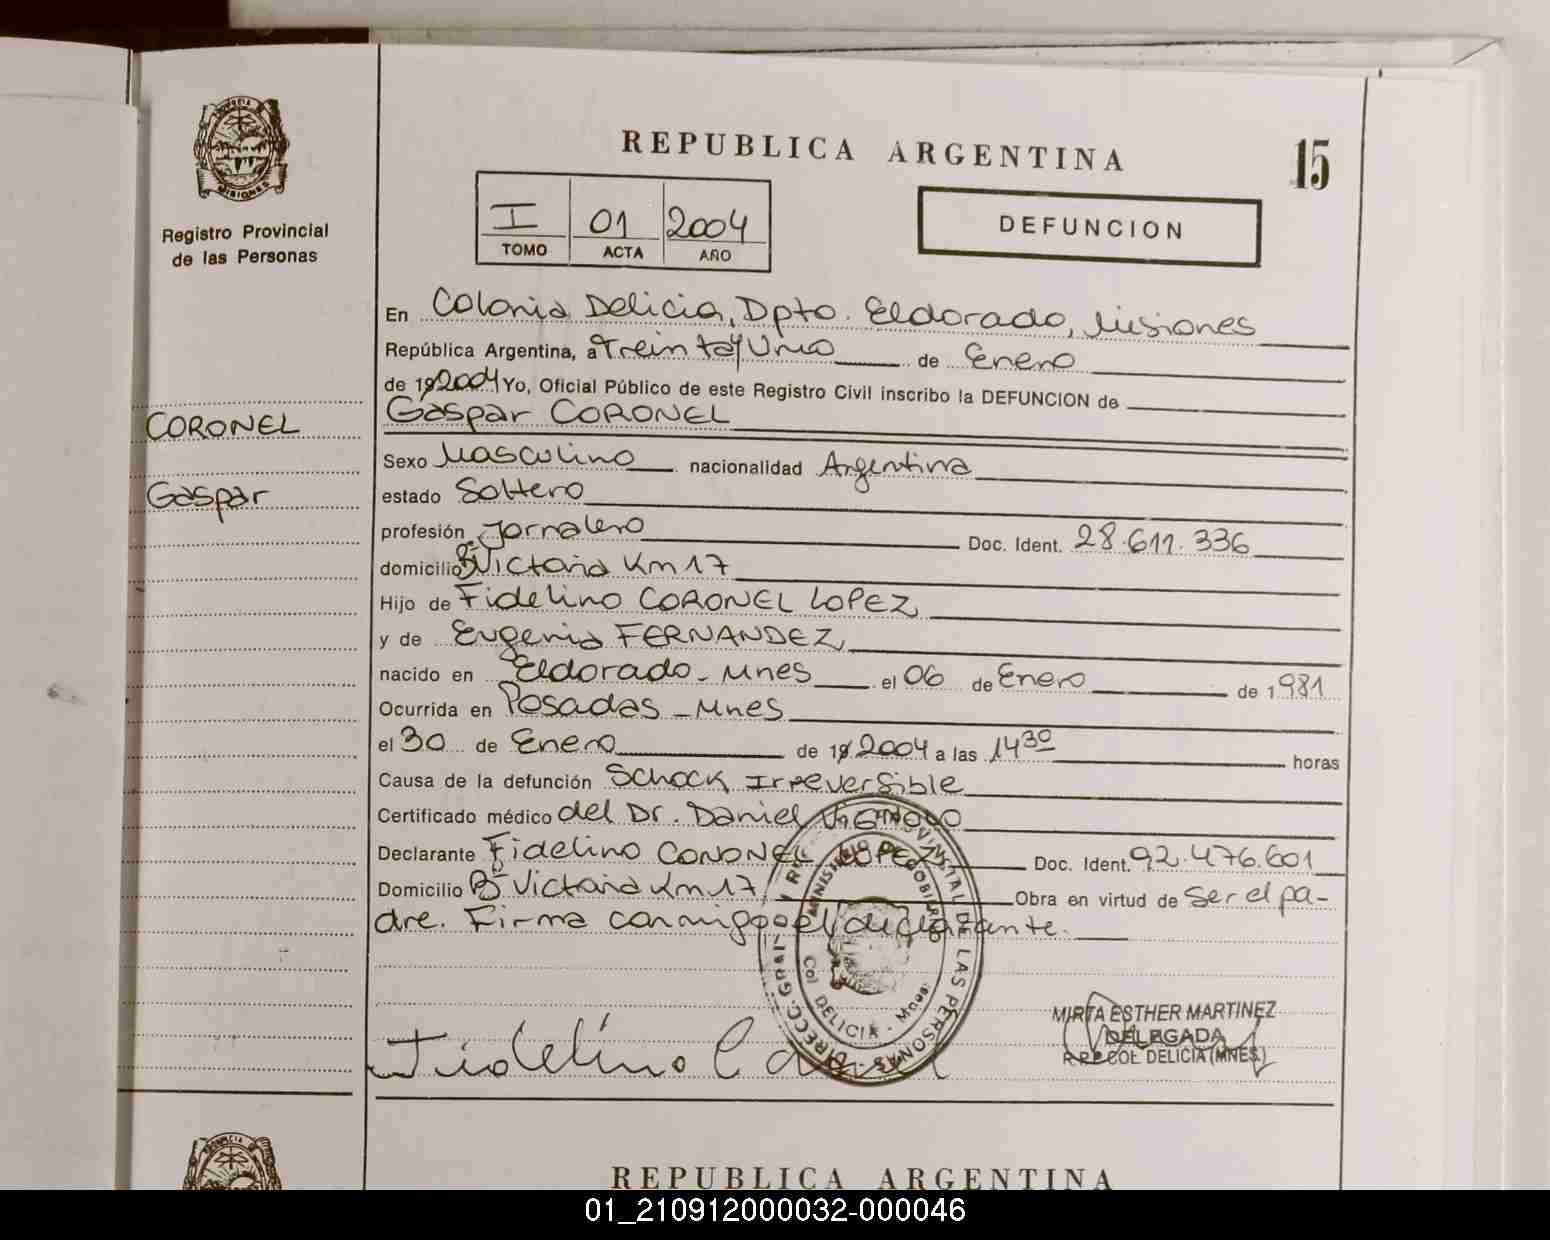 PROVINCIA DE
MISIONES
Registro Provincial
de las Personas
CORONEL
Gaspar
REPUBLICA ARGENTINA
15
I 01 2004
TOMO ACTA AÑO
DEFUNCION
En Colonia Delicia, Dpto. Eldorado, Misiones
República Argentina, a Treinta y Uno de Enero
de 19 2004 Yo, Oficial Público de este Registro Civil inscribo la DEFUNCION de
Gaspar CORONEL
Sexo Masculino nacionalidad Argentina
estado Soltero
profesión Jornalero Doc. Ident. 28.611.336
domicilio Bº Victoria Km 17
Hijo de Fidelino CORONEL LOPEZ,
y de Eugenia FERNANDEZ,
nacido en Eldorado - Mnes el 06 de Enero de 1981
Ocurrida en Posadas - Mnes
el 30 de Enero de 19 2004 a las 14 30 horas
Causa de la defunción Schock Irreversible
Certificado médico del Dr. Daniel
Declarante Fidelino CORONEL LOPEZ Doc. Ident. 92.476.601
Domicilio Bº Victoria Km 17, Obra en virtud de Ser el pa-
dre. Firma conmigo el declarante.
DIRECC. GRAL. PROVINCIAL DE LAS PERSONAS
MINISTERIO DE GOBIERNO
Col. DELICIA - Mnes.
Fidelino
MIRTA ESTHER MARTINEZ
DELEGADA
R.P.P. COL. DELICIA (MNES.)
PROVINCIA DE
REPUBLICA ARGENTINA
01_210912000032-000046